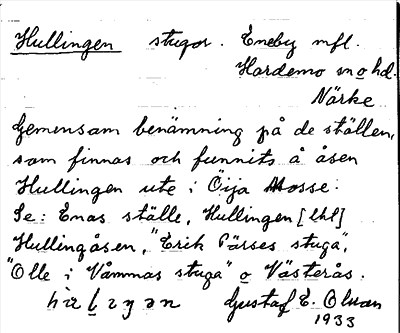 Hullingen stugor. Eneby mfl.
Hardemo sn o hd.
Närke
Gemensam benämning på de ställen,
som finnas och funnits å åsen
Hullingen ute i Öija Mosse:
Se: Enas ställe, Hullingen [lhl]
Hullingåsen, "Erik Pärses stuga",
"Olle i Våmmas stuga" o Västerås.
Gustaf E. Olsson
1933